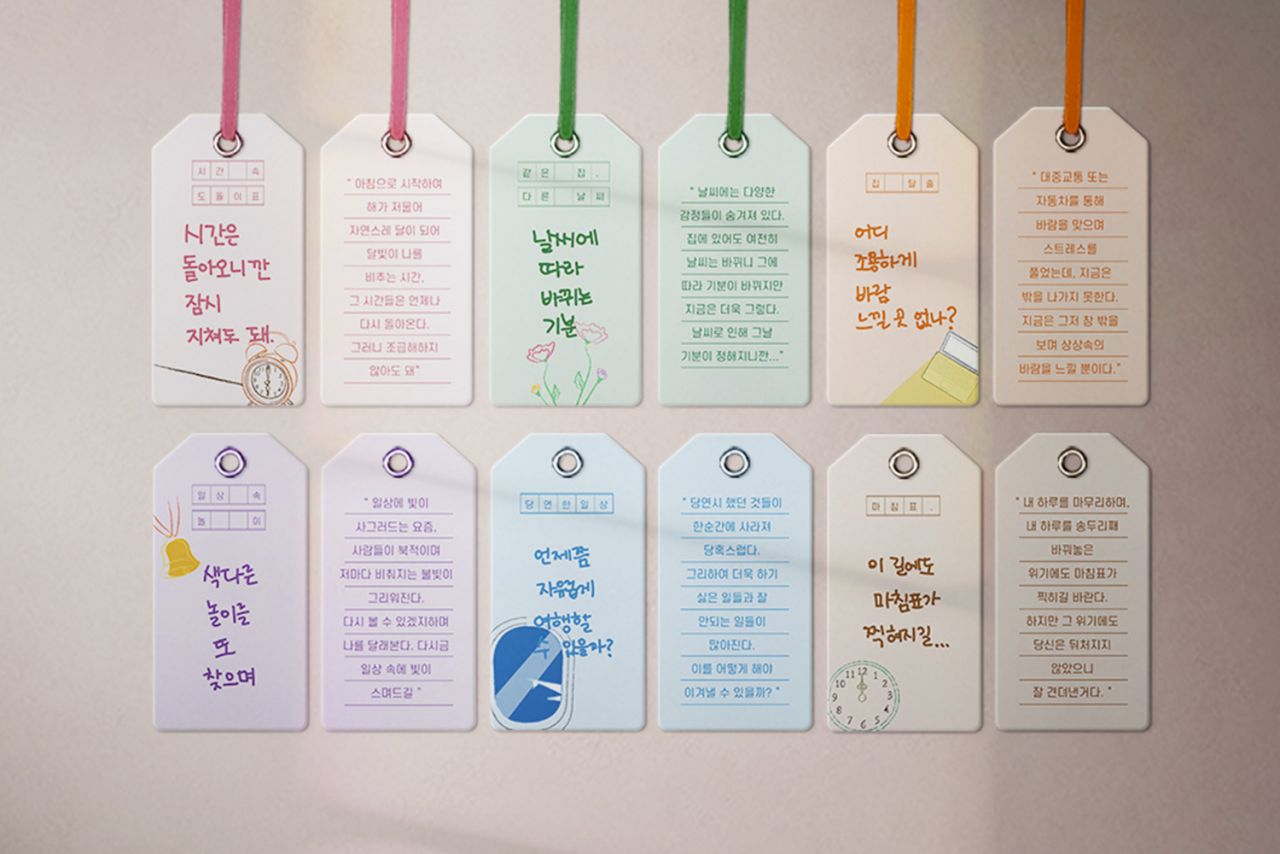 시간 속
도돌이표
시간은
돌아오니깐
잠시
지쳐도 돼.
" 아침으로 시작하여
해가 저물어
자연스레 달이 되어
달빛이 나를
비추는 시간,
그 시간들은 언제나
다시 돌아온다.
그러니 조급해하지
않아도 돼"
같은 집,
다른 날씨
날씨에
따라
바뀌는
기분
" 날씨에는 다양한
감정들이 숨겨져 있다.
집에 있어도 여전히
날씨는 바뀌니 그에
따라 기분이 바뀌지만
지금은 더욱 그렇다.
날씨로 인해 그날
기분이 정해지니깐..."
집 탈출
어디
조용하게
바람
느낄 곳 없나?
" 대중교통 또는
자동차를 통해
바람을 맞으며
스트레스를
풀었는데, 지금은
밖을 나가지 못한다.
지금은 그저 창 밖을
보며 상상속의
바람을 느낄 뿐이다."
일상 속
놀이
색다른
놀이를
또
찾으며
" 일상에 빛이
사그러드는 요즘,
사람들이 북적이며
저마다 비춰지는 불빛이
그리워진다.
다시 볼 수 있겠지하며
나를 달래본다. 다시금
일상 속에 빛이
스며드길 "
당연한일상
언제쯤
자유롭게
여행할
수 있을까?
" 당연시 했던 것들이
한순간에 사라져
당혹스럽다.
그리하여 더욱 하기
싫은 일들과 잘
안되는 일들이
많아진다.
이를 어떻게 해야
이겨낼 수 있을까? "
마침표.
이 길에도
마침표가
찍혀지길...
10 11 12 1 2
9 3
8 4
7 6 5
" 내 하루를 마무리하며,
내 하루를 송두리째
바꿔놓은
위기에도 마침표가
찍히길 바란다.
하지만 그 위기에도
당신은 뒤처지지
않았으니
잘 견뎌낸거다. "